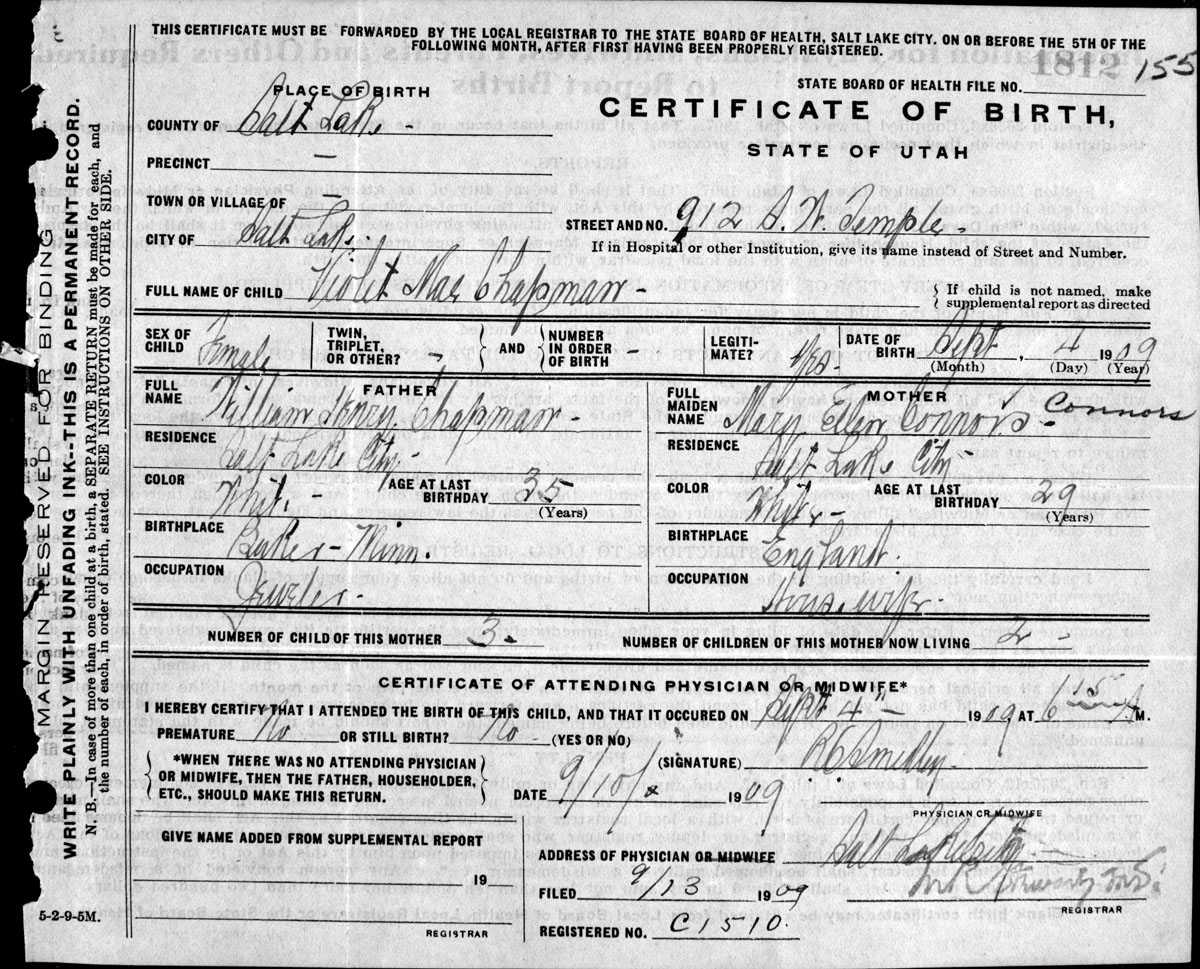 THIS CERTIFICATE MUST BE FORWARDED BY THE LOCAL REGISTRAR TO THE STATE BOARD OF HEALTH, SALT LAKE CITY, ON OR BEFORE THE 5TH OF THE
FOLLOWING MONTH, AFTER FIRST HAVING BEEN PROPERLY REGISTERED.
155
STATE BOARD OF HEALTH FILE NO.
CERTIFICATE OF BIRTH,
STATE OF UTAH
PLACE OF BIRTH
COUNTY OF Salt Lake
PRECINCT —
TOWN OR VILLAGE OF —
CITY OF Salt Lake
STREET AND NO. 912 S. W. Temple
If in Hospital or other Institution, give its name instead of Street and Number.
FULL NAME OF CHILD Violet Mae Chapman -
{ If child is not named, make
supplemental report as directed
SEX OF CHILD Female
TWIN, TRIPLET, OR OTHER?
AND
NUMBER IN ORDER OF BIRTH
LEGITI- MATE? Yes
DATE OF BIRTH Sept, 4 1909
(Month) (Day) (Year)
FATHER
FULL NAME William Henry Chapman -
RESIDENCE Salt Lake City
COLOR
AGE AT LAST BIRTHDAY 35
(Years)
BIRTHPLACE Minn.
OCCUPATION
MOTHER
FULL MAIDEN NAME Mary Ellen Connors - Connors
RESIDENCE Salt Lake City
COLOR White -
AGE AT LAST BIRTHDAY 29
(Years)
BIRTHPLACE England.
OCCUPATION Housewife
NUMBER OF CHILD OF THIS MOTHER 3 -
NUMBER OF CHILDREN OF THIS MOTHER NOW LIVING 2
CERTIFICATE OF ATTENDING PHYSICIAN OR MIDWIFE*
I HEREBY CERTIFY THAT I ATTENDED THE BIRTH OF THIS CHILD, AND THAT IT OCCURED ON Sept 4 - 1909 AT 6 A M.
PREMATURE No OR STILL BIRTH? No - (YES OR NO)
*WHEN THERE WAS NO ATTENDING PHYSICIAN
OR MIDWIFE, THEN THE FATHER, HOUSEHOLDER,
ETC., SHOULD MAKE THIS RETURN.
(SIGNATURE)
DATE 9/10/ 1909
PHYSICIAN OR MIDWIFE
GIVE NAME ADDED FROM SUPPLEMENTAL REPORT
19
REGISTRAR
ADDRESS OF PHYSICIAN OR MIDWIFE Salt Lake City
FILED 9/13 1909
REGISTRAR
REGISTERED NO. C1510
5-2-9-5M.
MARGIN RESERVED FOR BINDING
WRITE PLAINLY WITH UNFADING INK--THIS IS A PERMANENT RECORD.
N. B.—In case of more than one child at a birth, a SEPARATE RETURN must be made for each, and
the number of each, in order of birth, stated. SEE INSTRUCTIONS ON OTHER SIDE.